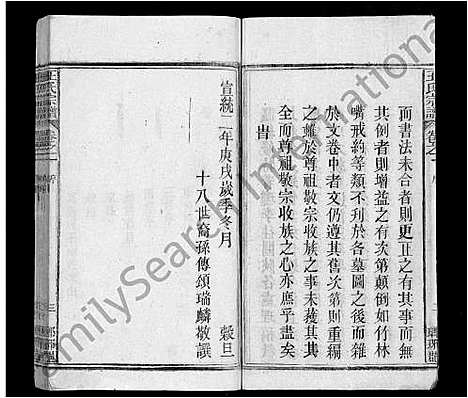 王氏宗譜
卷之一
序
而書法未合者則更正之有事而無
其例者則增益之有次第顛倒如竹林
嘴戒約等類不刋於各墓圖之後而雜
於文卷中者文仍遵其舊次第則重編
之雖於尊祖敬宗收族之事未獲其其
全而尊祖敬宗收族之心亦庶乎盡矣
旹
宣統二年庚戌歲季冬月　穀旦
十八世裔孫傳頌瑞麟敬譔
王氏宗譜
卷之一
序
三
FamilySearch International